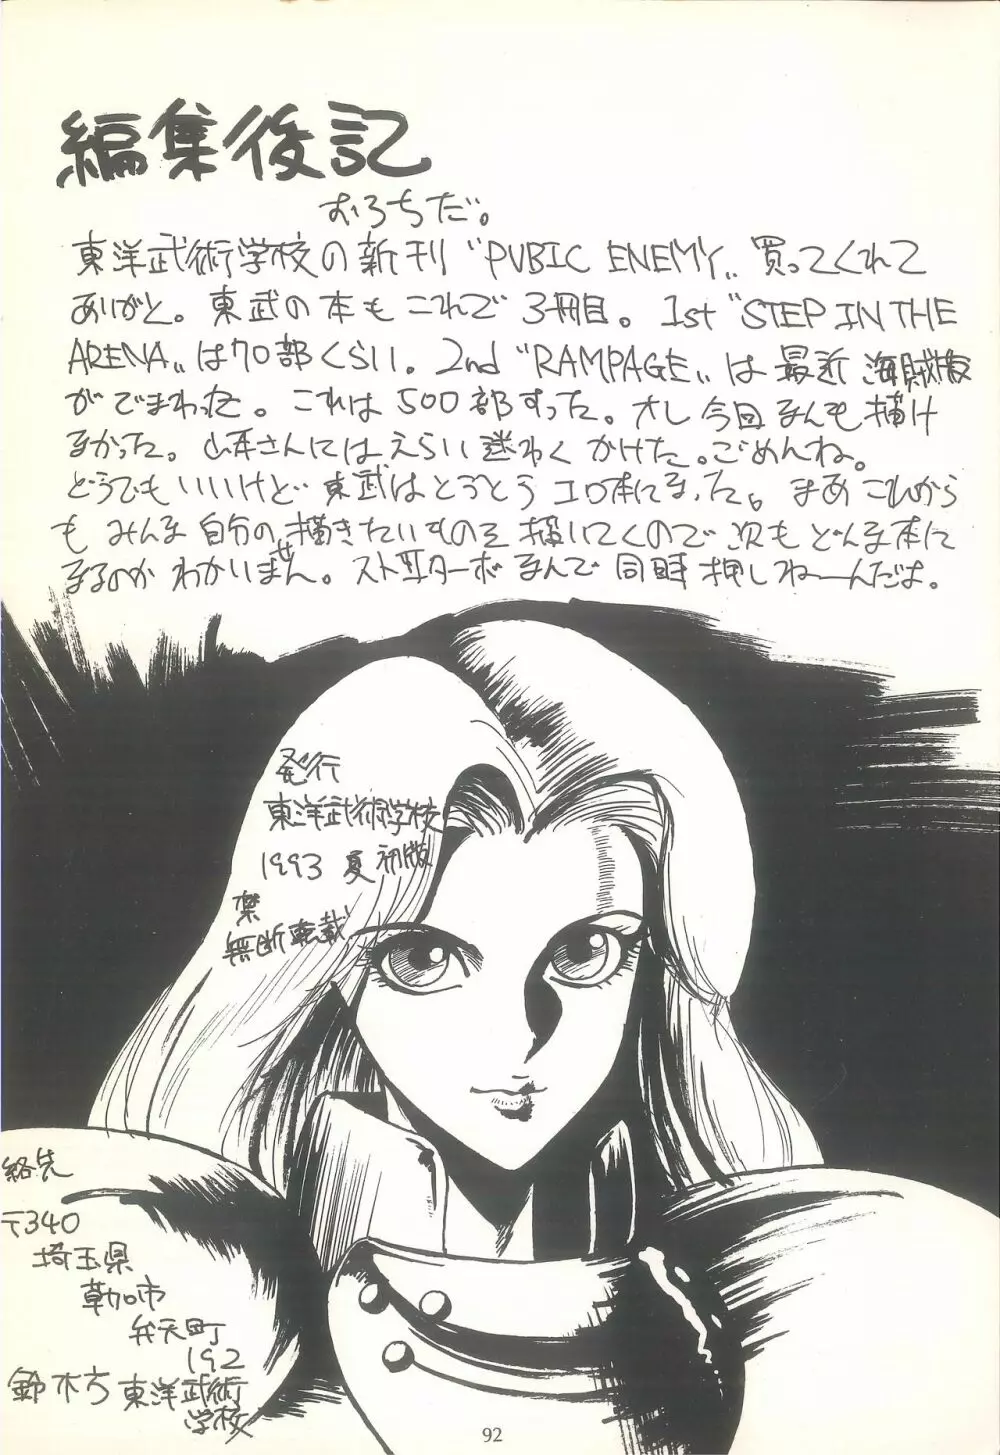 編集後記
むろちだ。
東洋武術学校の新刊〝PUBIC ENEMY〟買ってくれて
ありがと。東武の本もこれで3冊目。1st〝STEP IN THE
ARENA〟は70部くらい。2nd〝RAMPAGE〟は最近海賊版
がでまわった。これは500部すった。オレ今回なんも描け
なかった。山本さんにはえらい迷わくかけた。ごめんね。
どうでもいいけど東武はとうとうエロ本になった。まあこれから
もみんな自分の描きたいものを描いてくので次もどんな本に
なるのかわかいません。ストⅡターボなんで同時押しねーんだよ。
発行
東洋武術学校
1993 夏 初版
禁
無断転載
絡先
〒340
埼玉県
草加市
弁天町
192
鈴木方 東洋武術
学校
92